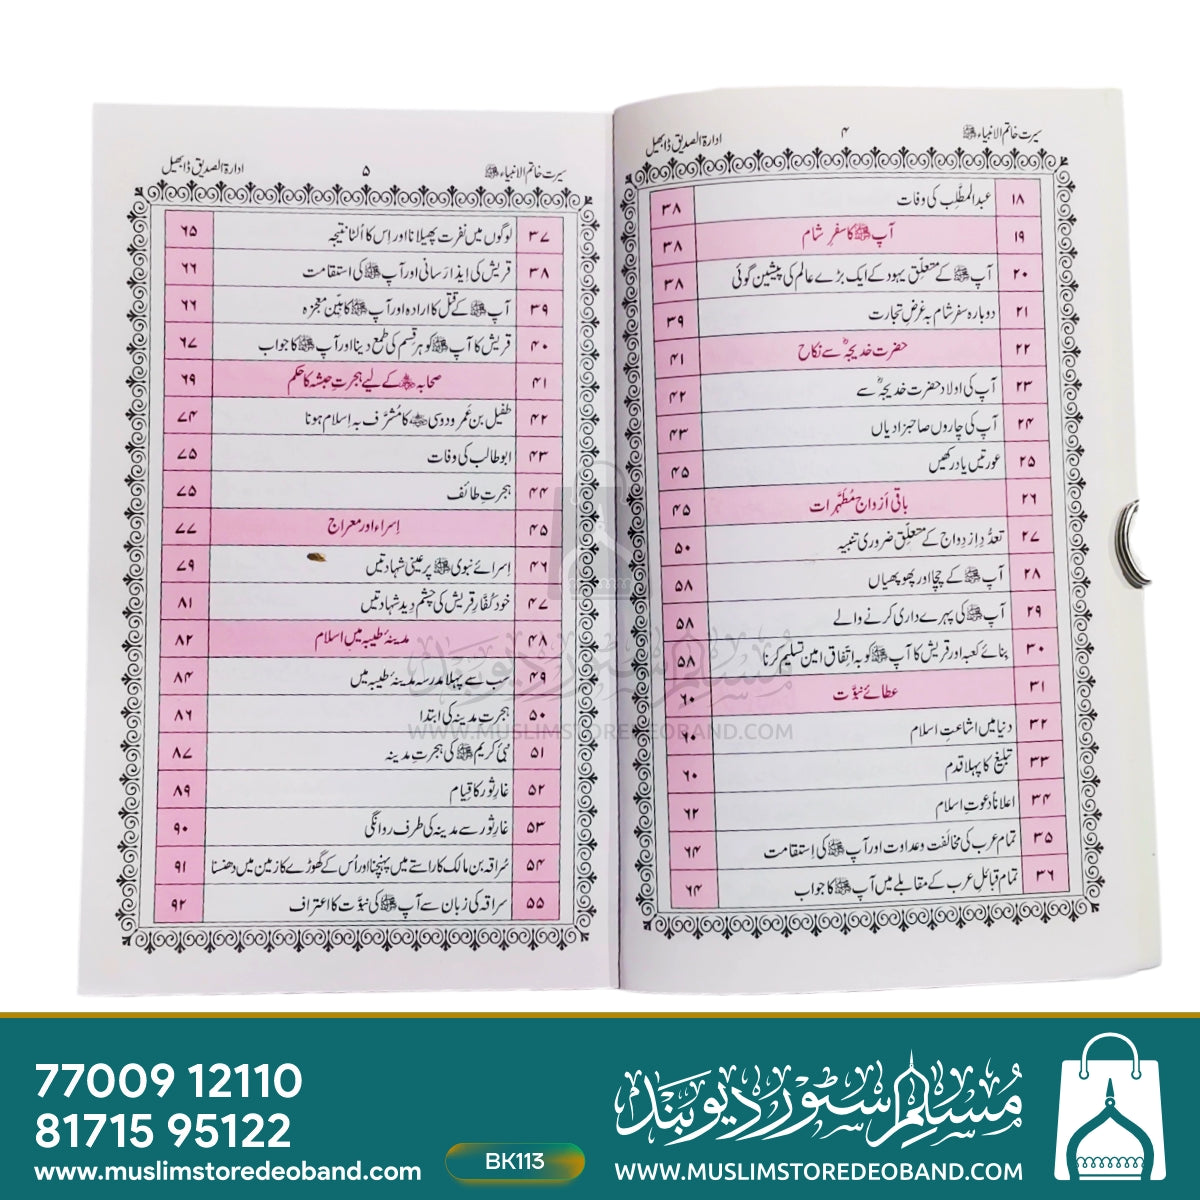 سیرت خاتم الانبیاء ﷺ ۴ ادارۃ الصدیق ڈابھیل
۱۸ عبدالمطّلِب کی وفات ۳۸
۱۹ آپ ﷺ کا سفرِ شام ۳۸
۲۰ آپ ﷺ کے متعلّق یہود کے ایک بڑے عالم کی پیشین گوئی ۳۸
۲۱ دوبارہ سفر شام بہ غرَضِ تجارت ۳۹
۲۲ حضرت خدیجہؓ سے نکاح ۴۱
۲۳ آپ کی اولاد حضرت خدیجہؓ سے ۴۲
۲۴ آپ کی چاروں صاحبزادیاں ۴۳
۲۵ عورتیں یاد رکھیں ۴۵
۲۶ باقی اَزواجِ مُطہَّرات ۴۵
۲۷ تعدُّدِ اِزدِواج کے متعلّق ضروری تنبیہ ۵۰
۲۸ آپ ﷺ کے چچا اور پھوپھیاں ۵۸
۲۹ آپ ﷺ کی پہرے داری کرنے والے ۵۸
۳۰ بِنائے کعبہ اور قریش کا آپ ﷺ کو بہ اتّفاق امین تسلیم کرنا ۵۸
۳۱ عطائے نبوَّت ۶۰
۳۲ دنیا میں اشاعتِ اسلام ۶۰
۳۳ تبلیغ کا پہلا قدم ۶۰
۳۴ اعلاناً دعوتِ اسلام ۶۲
۳۵ تمام عرب کی مخالفت و عداوت اور آپ ﷺ کی اِستقامت ۶۴
۳۶ تمام قبائلِ عرب کے مقابلے میں آپ ﷺ کا جواب ۶۴
سیرت خاتم الانبیاء ﷺ ۵ ادارۃ الصدیق ڈابھیل
۳۷ لوگوں میں نفرت پھیلانا اور اِس کا اُلٹا نتیجہ ۶۵
۳۸ قریش کی ایذا رَسانی اور آپ ﷺ کی استقامت ۶۶
۳۹ آپ ﷺ کے قتل کا ارادہ اور آپ ﷺ کا بیّن معجزہ ۶۶
۴۰ قریش کا آپ ﷺ کو ہر قسم کی طمع دینا اور آپ ﷺ کا جواب ۶۷
۴۱ صحابہ ؓ کے لیے ہجرتِ حبشہ کا حکم ۶۹
۴۲ طفیل بن عَمرو دوسی ؓ کا مُشرَّف بہ اِسلام ہونا ۷۴
۴۳ ابوطالب کی وفات ۷۵
۴۴ ہجرتِ طائف ۷۵
۴۵ اِسراء اور معراج ۷۷
۴۶ اِسرائے نبوی ﷺ پر عینی شہادتیں ۷۹
۴۷ خود کُفّارِ قریش کی چشم دِید شہادتیں ۸۱
۴۸ مدینۂ طیبہ میں اسلام ۸۲
۴۹ سب سے پہلا مدرسہ مدینۂ طیبہ میں ۸۴
۵۰ ہجرتِ مدینہ کی ابتدا ۸۶
۵۱ نبیٔ کریم ﷺ کی ہجرتِ مدینہ ۸۷
۵۲ غارِ ثور کا قِیام ۸۹
۵۳ غارِ ثور سے مدینہ کی طرف روانگی ۹۰
۵۴ سُراقہ بن مالک کا راستے میں پہنچنا اور اُس کے گھوڑے کا زمین میں دھنسنا ۹۱
۵۵ سراقہ کی زبان سے آپ ﷺ کی نبوَّت کا اعتراف ۹۲
مسلم سٹور دیوبند
WWW.MUSLIMSTOREDEOBAND.COM
77009 12110
81715 95122
www.muslimstoredeoband.com
BK113
مسلم سٹور دیوبند
WWW.MUSLIMSTOREDEOBAND.COM